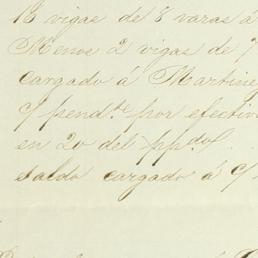 18 vigas de 8 varas á
Menos 2 vigas de 7
cargado á Martine
c/ pendte por efectiv
en 20 del ppdo/ . .
saldo cargado á c/